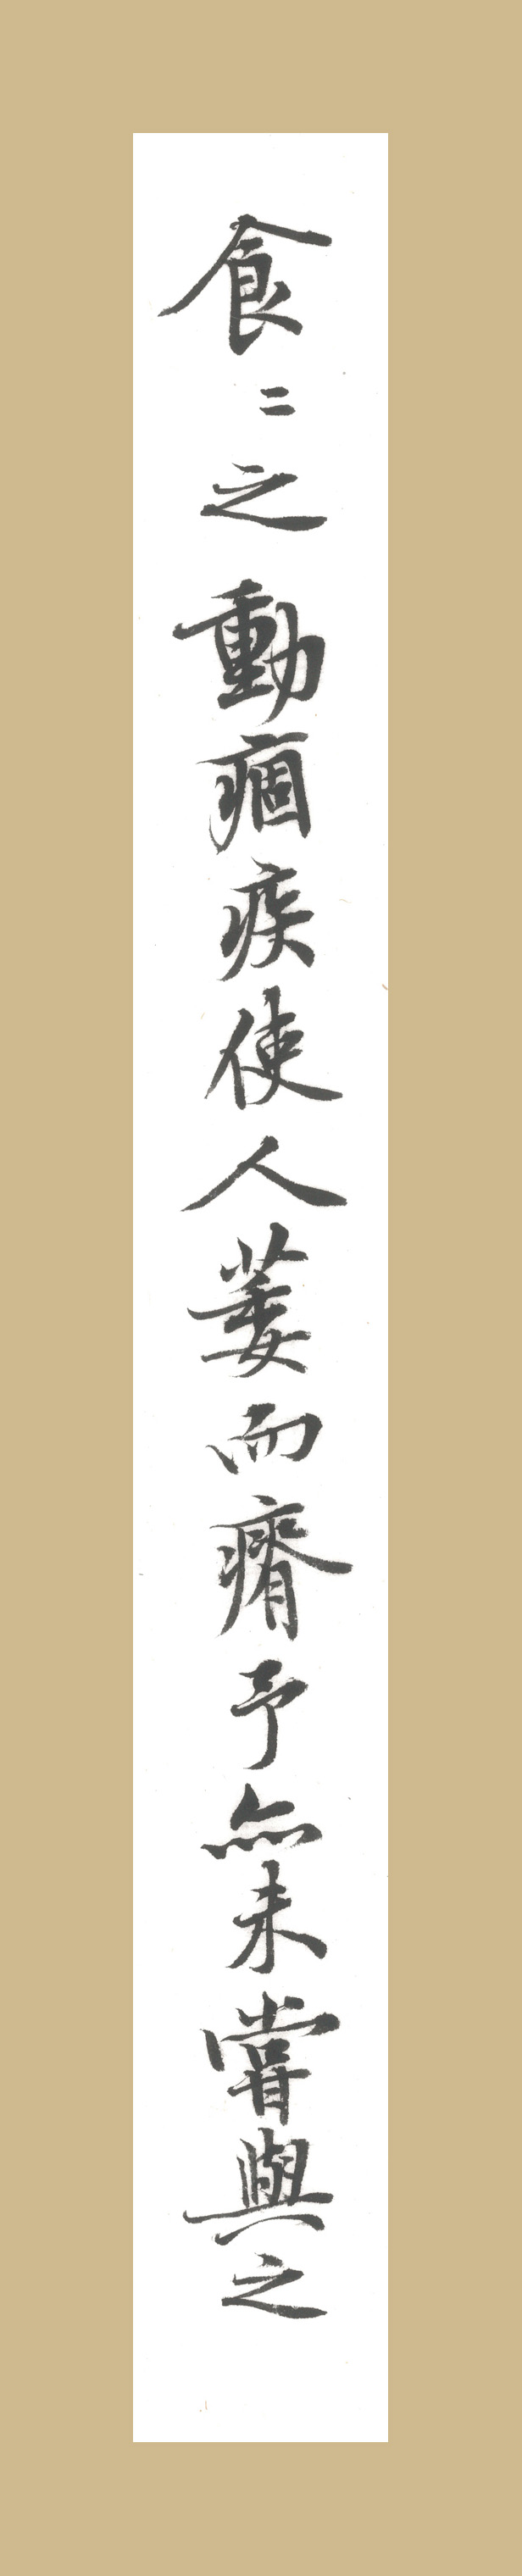 食〻之動痼疾使人萎而瘠予亦未嘗與之